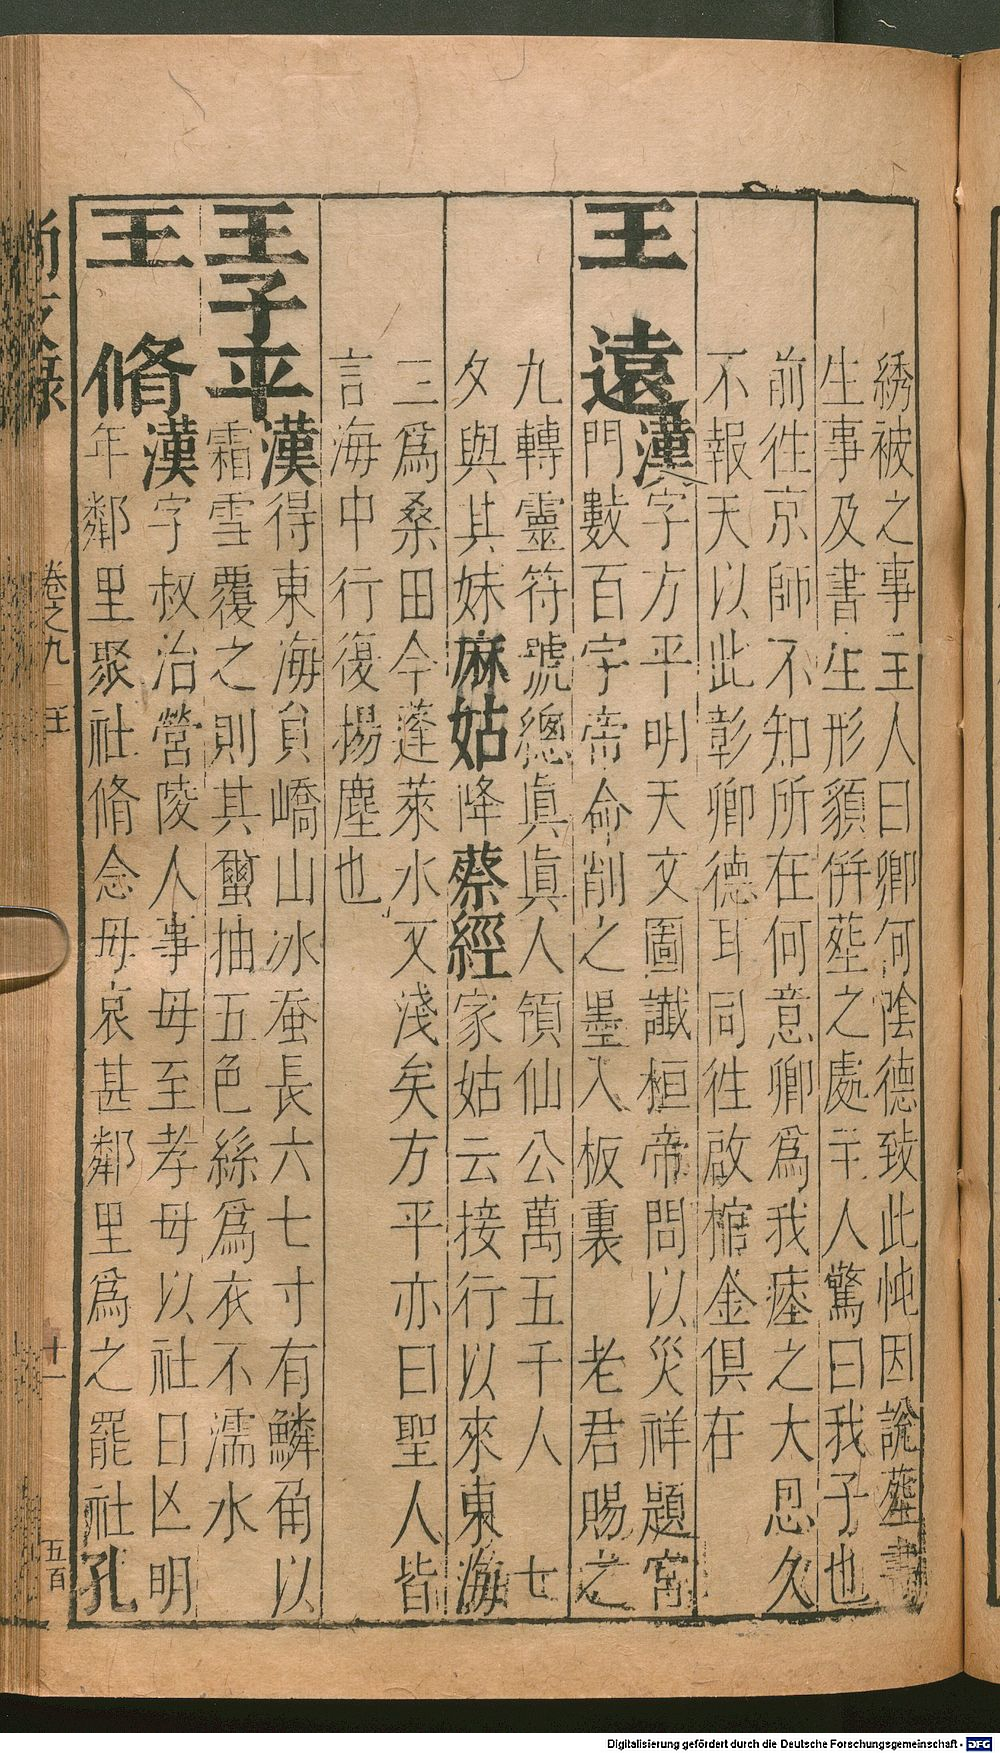 綉被之事主人曰卿何陰德致此恠因說塟書
生事及書生形貌併塟之處主人驚曰我子也
前徃京師不知所在何意卿爲我瘞之大恩久
不報天以此彰卿德耳同徃啟棺金俱在
王遠漢字方平明天文圖讖桓帝問以災祥題宮
門數百字帝命削之墨入板裏 老君賜之
九轉靈符號總眞眞人領仙公萬五千人 七
夕與其妹麻姑降蔡經家姑云接行以來東海
三爲桑田今蓬萊水又淺矣方平亦曰聖人皆
言海中行復揚塵也
王子平漢得東海負嶠山冰蚕長六七寸有鱗角以
霜雪覆之則其蠒抽五色絲爲衣不濡水
王脩漢字叔治營陵人事母至孝母以社日凶明
年鄰里聚社脩念母哀甚鄰里爲之罷社孔
尚友錄 卷之九 王 十一 五百
Digitalisierung gefördert durch die Deutsche Forschungsgemeinschaft - DFG